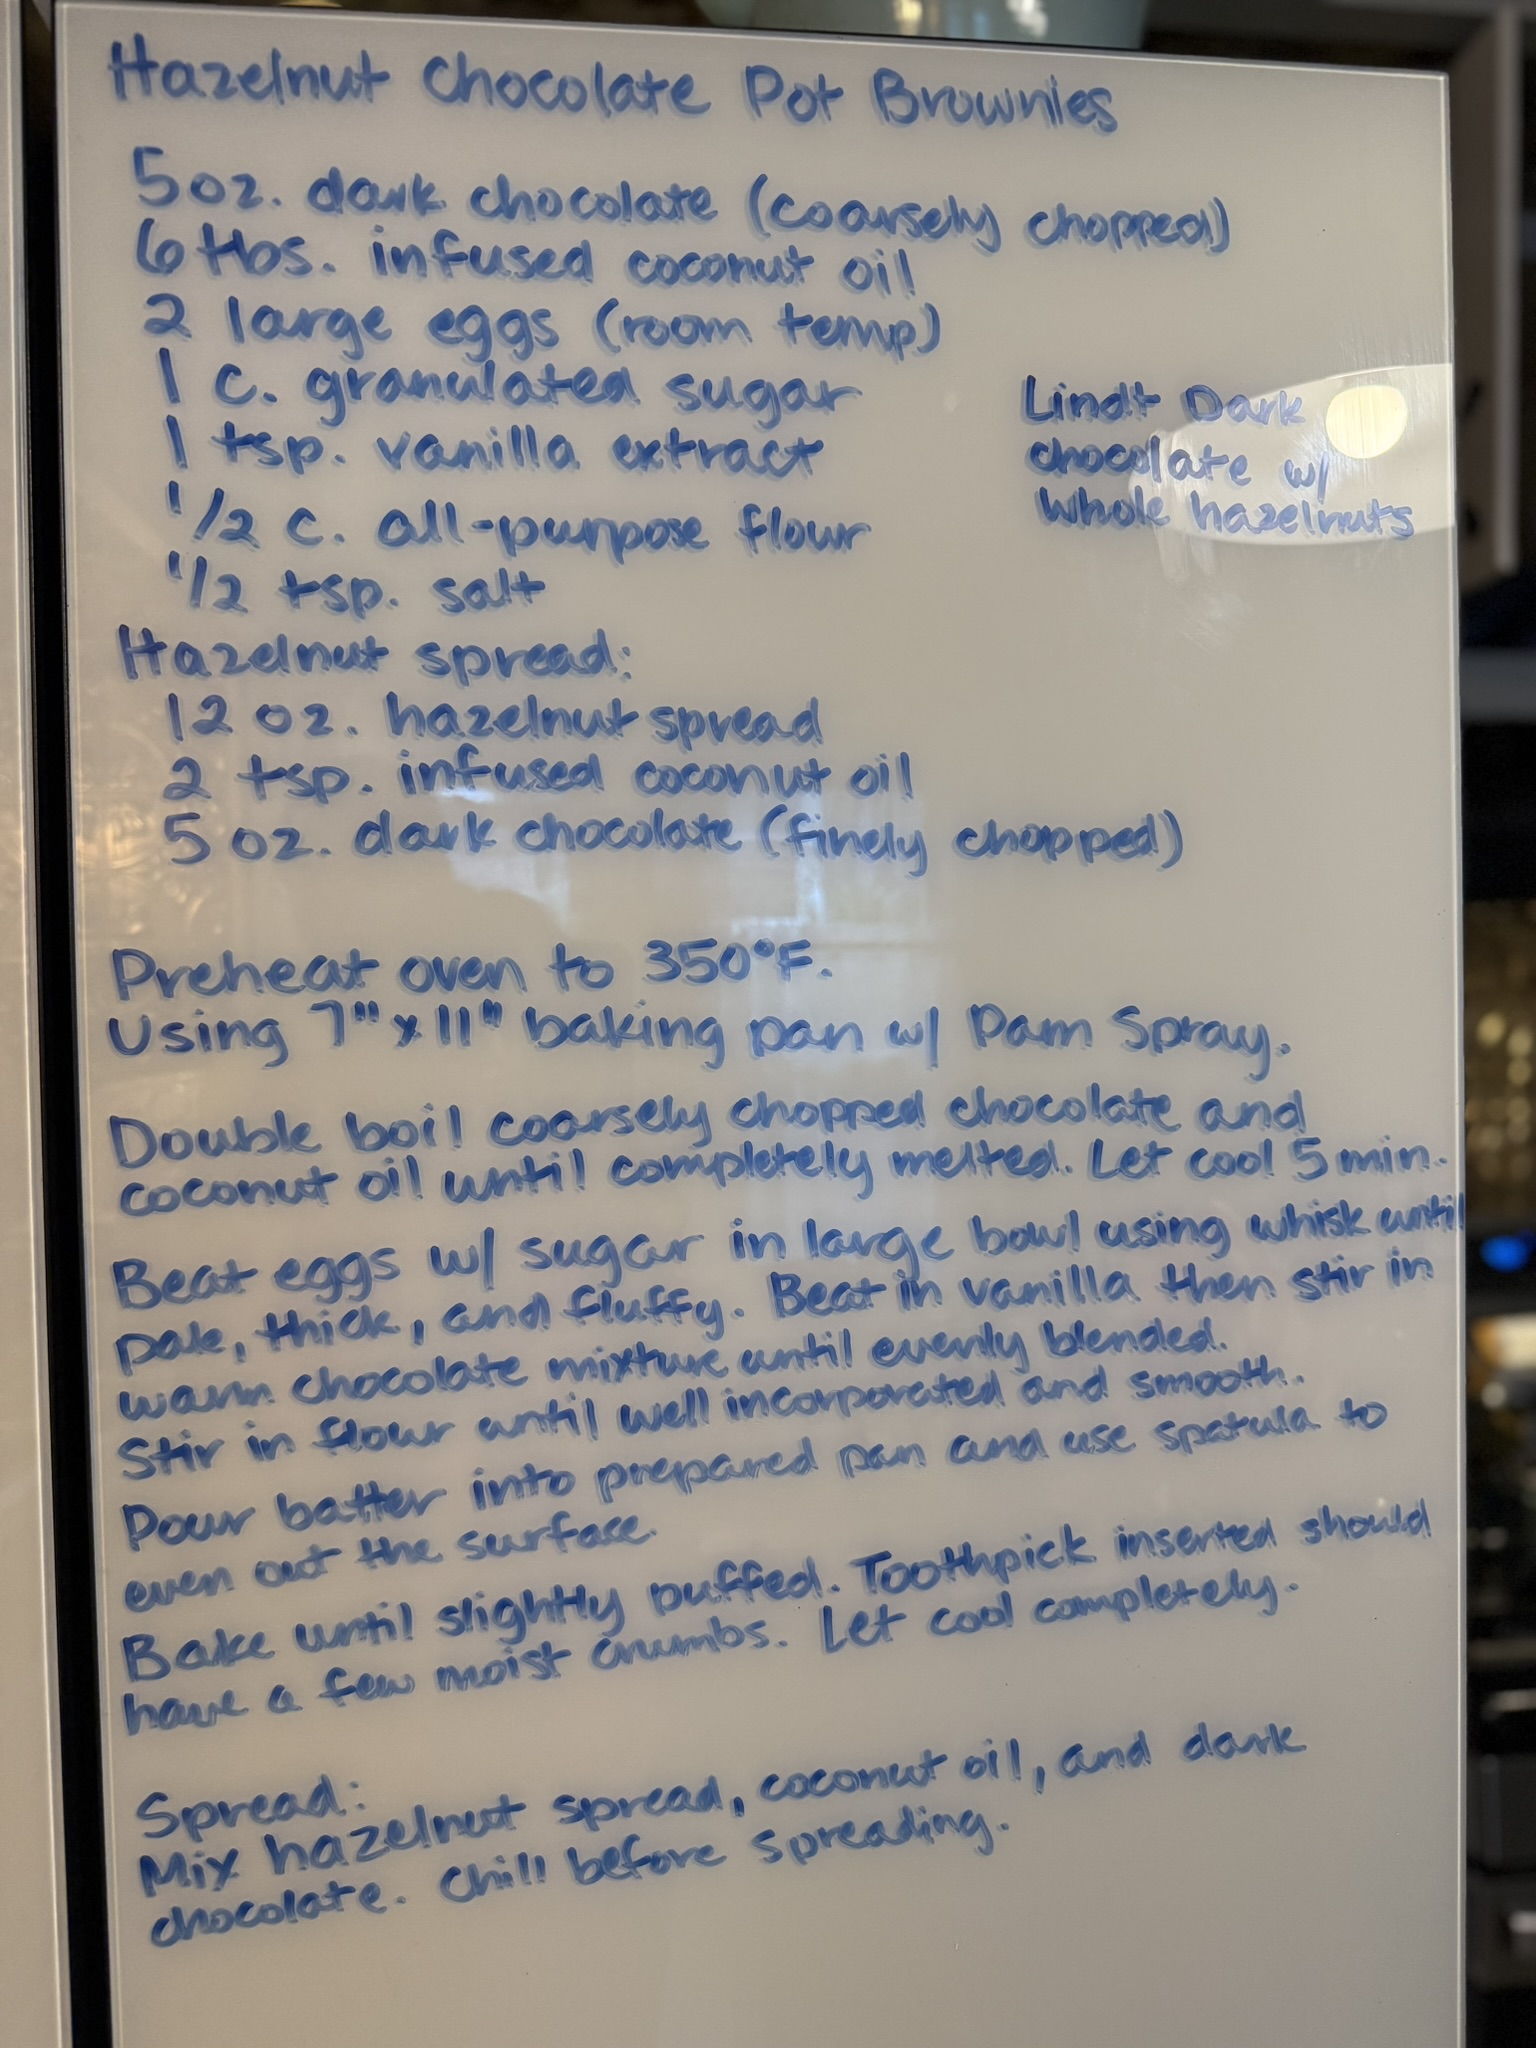 Hazelnut Chocolate Pot Brownies
5 oz. dark chocolate (coarsely chopped)
6 tbs. infused coconut oil
2 large eggs (room temp)
1 c. granulated sugar
1 tsp. vanilla extract
1/2 c. all-purpose flour
1/2 tsp. salt
Lindt Dark
chocolate w/
whole hazelnuts
Hazelnut spread:
12 oz. hazelnut spread
2 tsp. infused coconut oil
5 oz. dark chocolate (finely chopped)
Preheat oven to 350°F.
Using 7" x 11" baking pan w/ Pam Spray.
Double boil coarsely chopped chocolate and
coconut oil until completely melted. Let cool 5 min.
Beat eggs w/ sugar in large bowl using whisk until
pale, thick, and fluffy. Beat in vanilla then stir in
warm chocolate mixture until evenly blended.
Stir in flour until well incorporated and smooth.
Pour batter into prepared pan and use spatula to
even out the surface.
Bake until slightly puffed. Toothpick inserted should
have a few moist crumbs. Let cool completely.
Spread:
Mix hazelnut spread, coconut oil, and dark
chocolate. Chill before spreading.